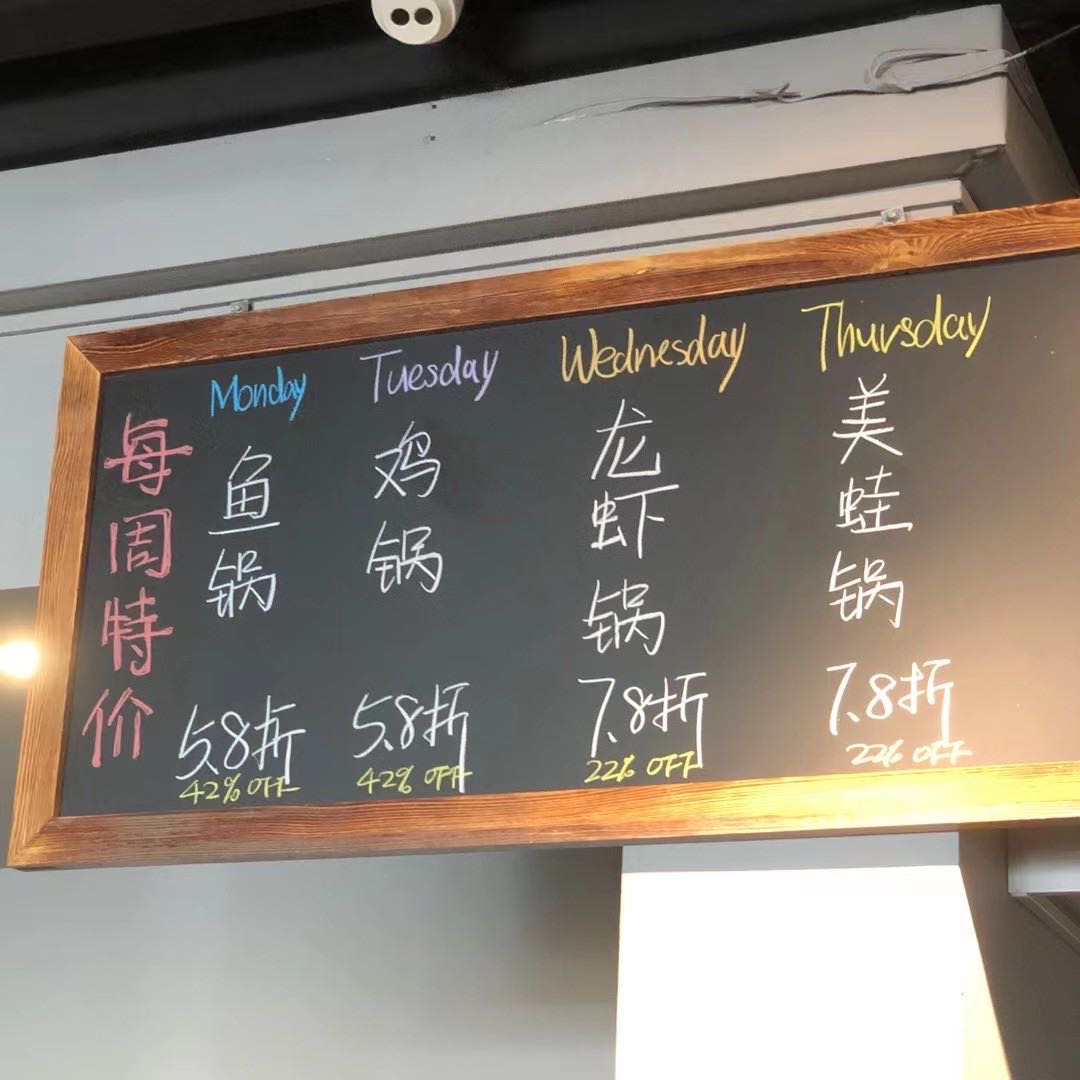 每周特价
Monday
鱼锅
5.8折
42% OFF
Tuesday
鸡锅
5.8折
42% OFF
Wednesday
龙虾锅
7.8折
22% OFF
Thursday
美蛙锅
7.8折
22% OFF